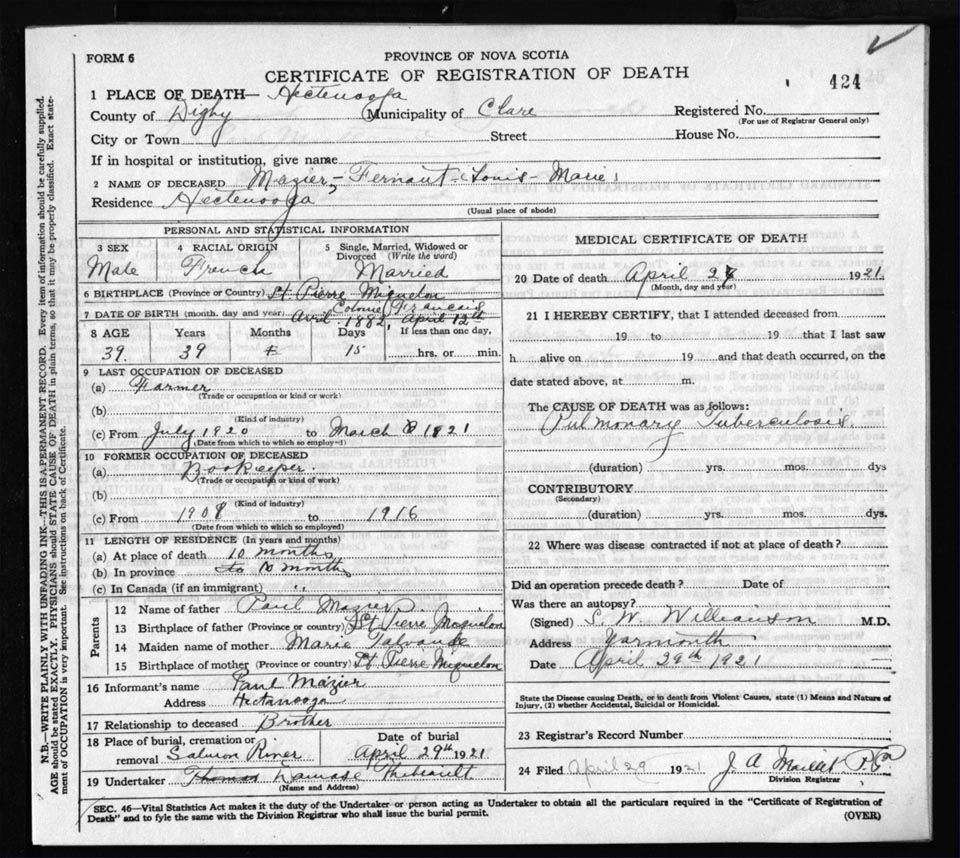 FORM 6
PROVINCE OF NOVA SCOTIA
CERTIFICATE OF REGISTRATION OF DEATH
424
1 PLACE OF DEATH— Hectenooga
County of Digby (Municipality of Clare Registered No.
(For use of Registrar General only)
City or Town Street House No.
If in hospital or institution, give name
2 NAME OF DECEASED Mazier, - Fernaut - Louis - Marie
Residence Hectenooga
(Usual place of abode)
PERSONAL AND STATISTICAL INFORMATION
3 SEX Male
4 RACIAL ORIGIN French
5 Single, Married, Widowed or Divorced (Write the word) Married
6 BIRTHPLACE (Province or Country) St Pierre Miquelon
Colonie Francais
7 DATE OF BIRTH (month, day and year) Avril. 1882, April 12th
8 AGE Years Months Days If less than one day,
39. 39 15 hrs. or min.
9 LAST OCCUPATION OF DECEASED
(a) Farmer
(Trade or occupation or kind of work)
(b)
(Kind of industry)
(c) From July 1920 to March 1921
(Date from which to which so employed)
10 FORMER OCCUPATION OF DECEASED
(a) Bookeeper.
(Trade or occupation or kind of work)
(b)
(Kind of industry)
(c) From 1908 to 1916
(Date from which to which so employed)
11 LENGTH OF RESIDENCE (In years and months)
(a) At place of death 10 months
(b) In province 10 months
(c) In Canada (if an immigrant) " "
Parents
12 Name of father Paul Mazier.
13 Birthplace of father (Province or country) St Pierre Miquelon
14 Maiden name of mother Marie
15 Birthplace of mother (Province or country) St Pierre Miquelon
16 Informant's name Paul Mazier
Address Hectanooga
17 Relationship to deceased Brother
18 Place of burial, cremation or removal Salmon River
Date of burial April 29th 1921
19 Undertaker Thomas Damase Thibeault
(Name and Address)
MEDICAL CERTIFICATE OF DEATH
20 Date of death April 27 1921.
(Month, day and year)
21 I HEREBY CERTIFY, that I attended deceased from
19 to 19 that I last saw
h alive on 19 and that death occurred, on the
date stated above, at m.
The CAUSE OF DEATH was as follows:
Pulmonary Tuberculosis.
(duration) yrs. mos. dys
CONTRIBUTORY
(Secondary)
(duration) yrs. mos. dys.
22 Where was disease contracted if not at place of death?
Did an operation precede death? Date of
Was there an autopsy?
(Signed) S. W. Williamson M.D.
Address Yarmouth
Date April 29th 1921
State the Disease causing Death, or in death from Violent Causes, state (1) Means and Nature of
Injury, (2) whether Accidental, Suicidal or Homicidal.
23 Registrar's Record Number
24 Filed April 29 1921 J. A.
Division Registrar
SEC. 46—Vital Statistics Act makes it the duty of the Undertaker or person acting as Undertaker to obtain all the particulars required in the "Certificate of Registration of
Death" and to fyle the same with the Division Registrar who shall issue the burial permit.
(OVER)
N.B.—WRITE PLAINLY WITH UNFADING INK—THIS IS A PERMANENT RECORD. Every item of information should be carefully supplied.
AGE should be stated EXACTLY. PHYSICIANS should STATE CAUSE OF DEATH in plain terms, so that it may be properly classified. Exact state-
ment of OCCUPATION is very important. See instructions on back of Certificate.